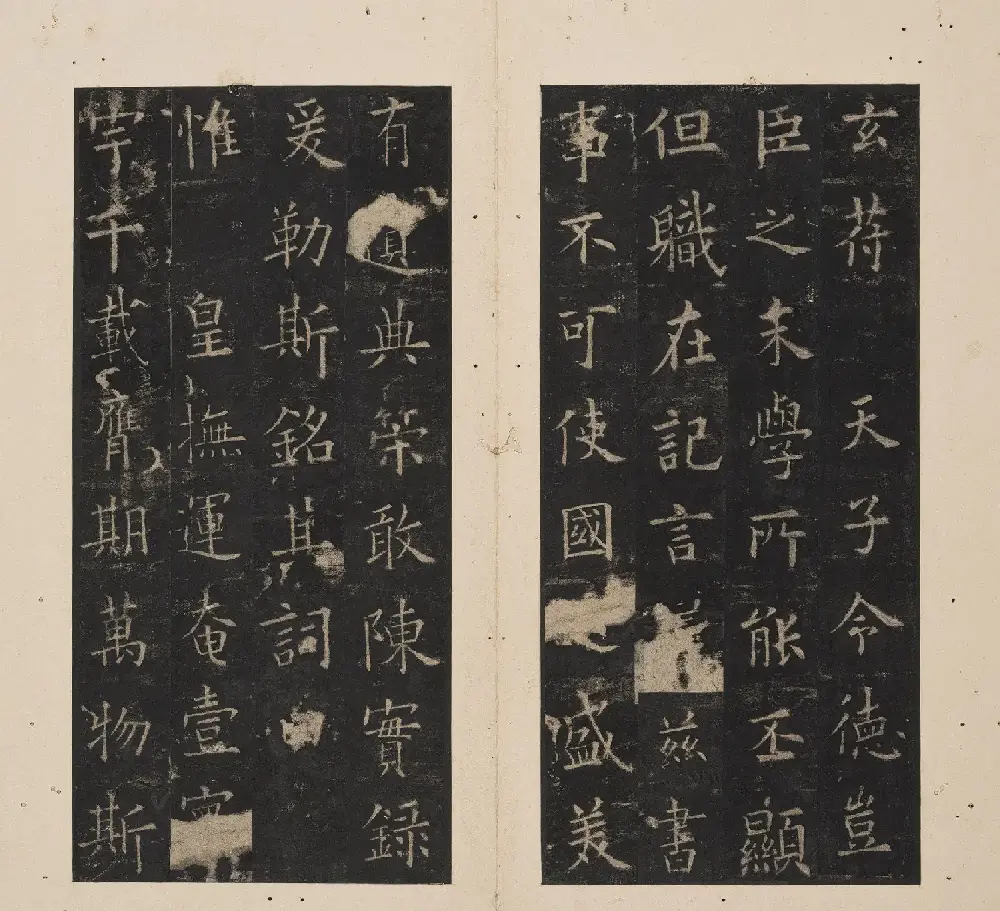 玄苻 天子令德豈
臣之末學所能丕顯
但職在記言茲書
事不可使國盛美
有遺典策敢陳實録
爰勒斯銘其詞
惟 皇撫運奄壹寰
宇千載膺期萬物斯